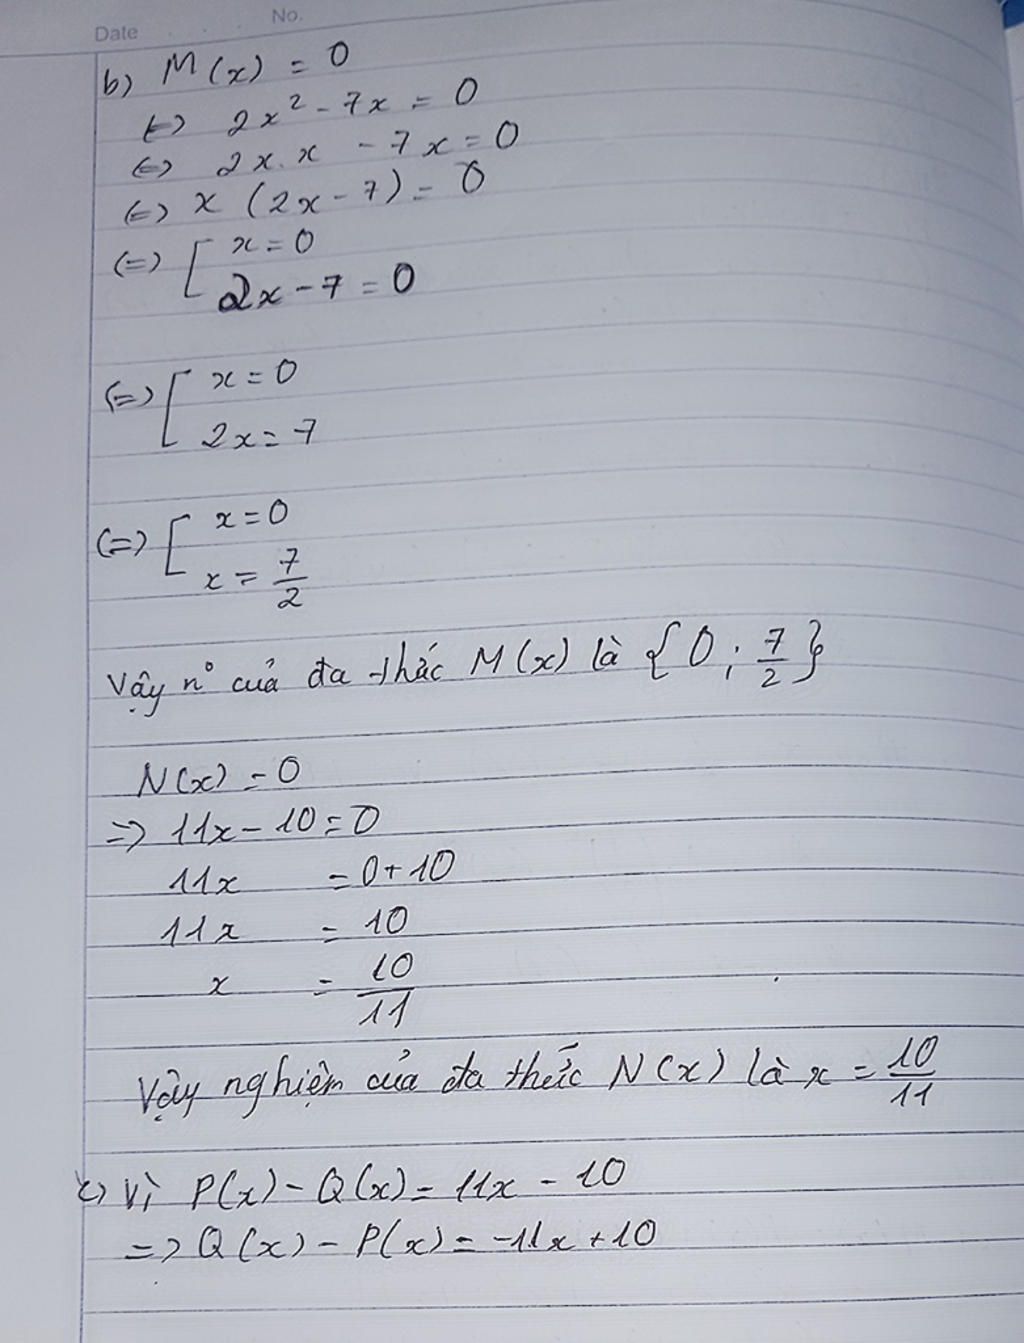 Date No.
b) M(x) = 0
(=) 2x² - 7x = 0
(=) 2x.x - 7x = 0
(=) x (2x - 7) = 0
(=) [ x = 0
2x - 7 = 0
(=) [ x = 0
2x = 7
(=) [ x = 0
x = 7/2
Vậy n° của đa thức M(x) là {0; 7/2}
N(x) = 0
=> 11x - 10 = 0
11x = 0 + 10
11x = 10
x = 10/11
Vậy nghiệm của đa thức N(x) là x = 10/11
c) Vì P(x) - Q(x) = 11x - 10
=> Q(x) - P(x) = -11x + 10